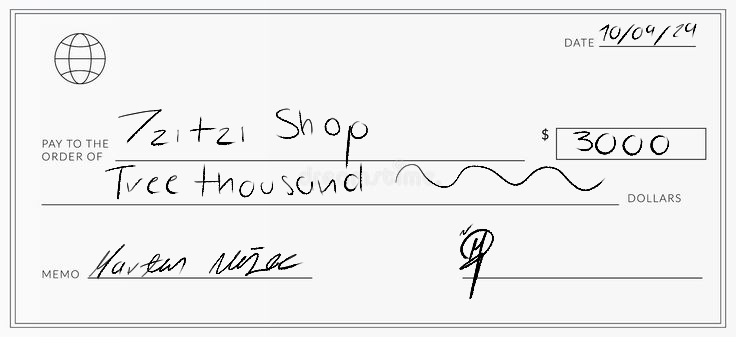 DATE 10/09/29
PAY TO THE ORDER OF Tzitzi Shop $ 3000
Tree thousand DOLLARS
MEMO